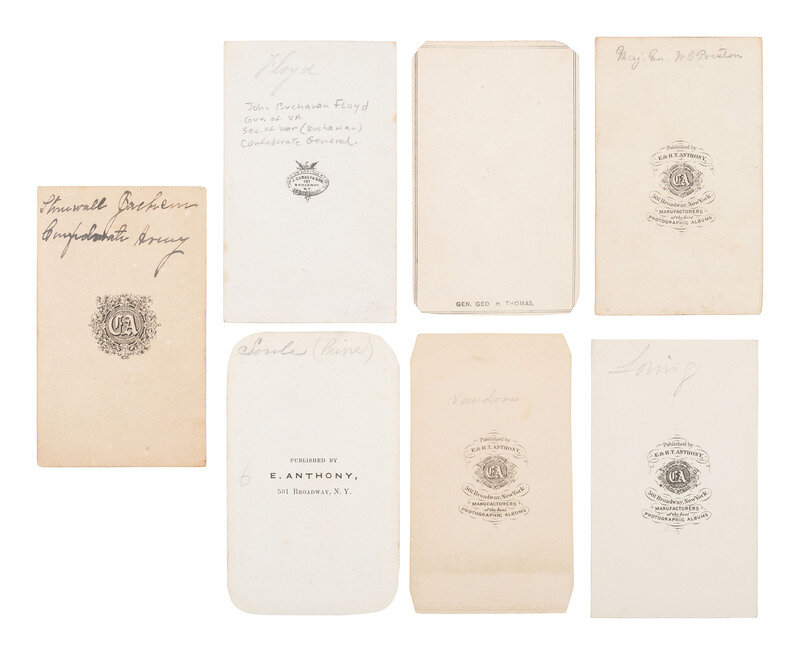 Stonewall Jackson
Confederate Army
CA
Floyd
John Buchanan Floyd
Gov. of VA
Sec. of War (Buchanan)
Confederate General.
707
BROADWAY,
N.Y.
GEN. GEO. H. THOMAS.
Maj. Gen. W C Preston
Published by
E. & H. T. ANTHONY,
CA
501 Broadway, New York
MANUFACTURERS
of the best
PHOTOGRAPHIC ALBUMS
Soule (Pierre)
PUBLISHED BY
E. ANTHONY,
501 BROADWAY, N. Y.
Vandorn
Published by
E. & H. T. ANTHONY,
CA
501 Broadway, New York
MANUFACTURERS
of the best
PHOTOGRAPHIC ALBUMS
Loring
Published by
E. & H. T. ANTHONY,
CA
501 Broadway, New York
MANUFACTURERS
of the best
PHOTOGRAPHIC ALBUMS